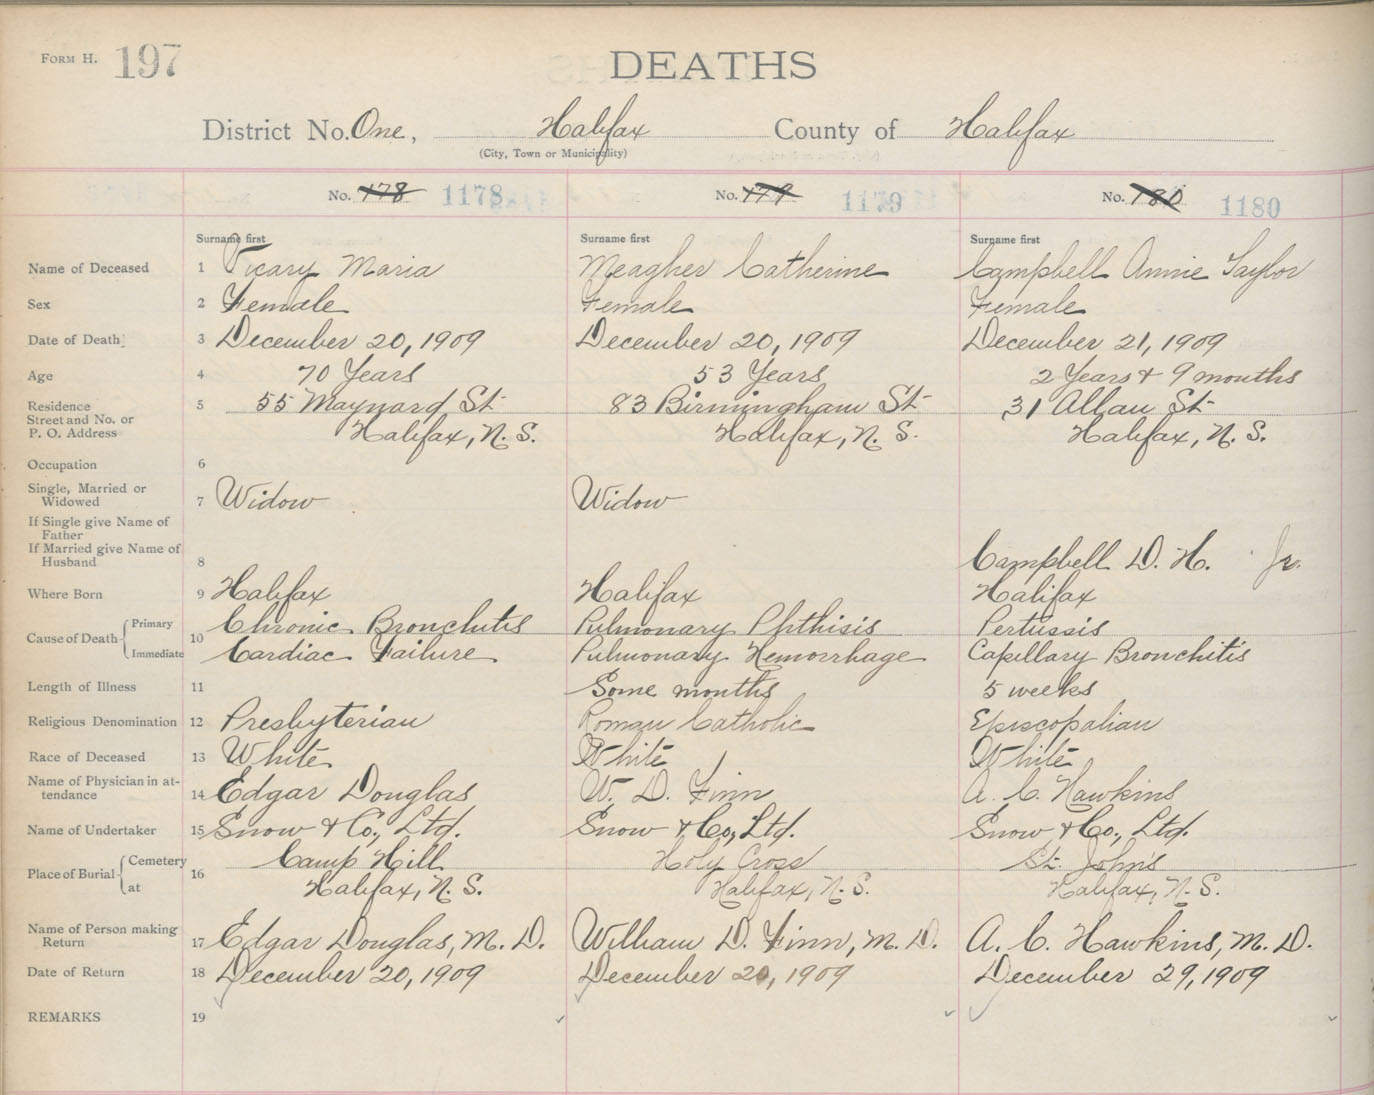 FORM H. 197
DEATHS
District No. One, Halifax County of Halifax
(City, Town or Municipality)
No. 178 1178 No. 179 1179 No. 180 1180
Surname first Surname first Surname first
Name of Deceased 1 Vicary Maria Meagher Catherine Campbell Annie Taylor
Sex 2 Female Female Female
Date of Death 3 December 20, 1909 December 20, 1909 December 21, 1909
Age 4 70 Years 53 Years 2 Years & 9 months
Residence
Street and No. or 5 55 Maynard St 83 Birmingham St 31 Allan St
P. O. Address Halifax, N. S. Halifax, N. S. Halifax, N. S.
Occupation 6
Single, Married or
Widowed 7 Widow Widow
If Single give Name of
Father
If Married give Name of
Husband 8 Campbell D. H. Jr.
Where Born 9 Halifax Halifax Halifax
Cause of Death Primary 10 Chronic Bronchitis Pulmonary Phthisis Pertussis
Immediate Cardiac Failure Pulmonary Hemorrhage Capillary Bronchitis
Length of Illness 11 Some months 5 weeks
Religious Denomination 12 Presbyterian Roman Catholic Episcopalian
Race of Deceased 13 White White White
Name of Physician in at-
tendance 14 Edgar Douglas W. D. Finn A. C. Hawkins
Name of Undertaker 15 Snow & Co., Ltd. Snow & Co., Ltd. Snow & Co., Ltd.
Place of Burial Cemetery 16 Camp Hill Holy Cross St. John's
at Halifax, N. S. Halifax, N. S. Halifax, N. S.
Name of Person making
Return 17 Edgar Douglas, M. D. William D. Finn, M. D. A. C. Hawkins, M. D.
Date of Return 18 December 20, 1909 December 20, 1909 December 29, 1909
REMARKS 19